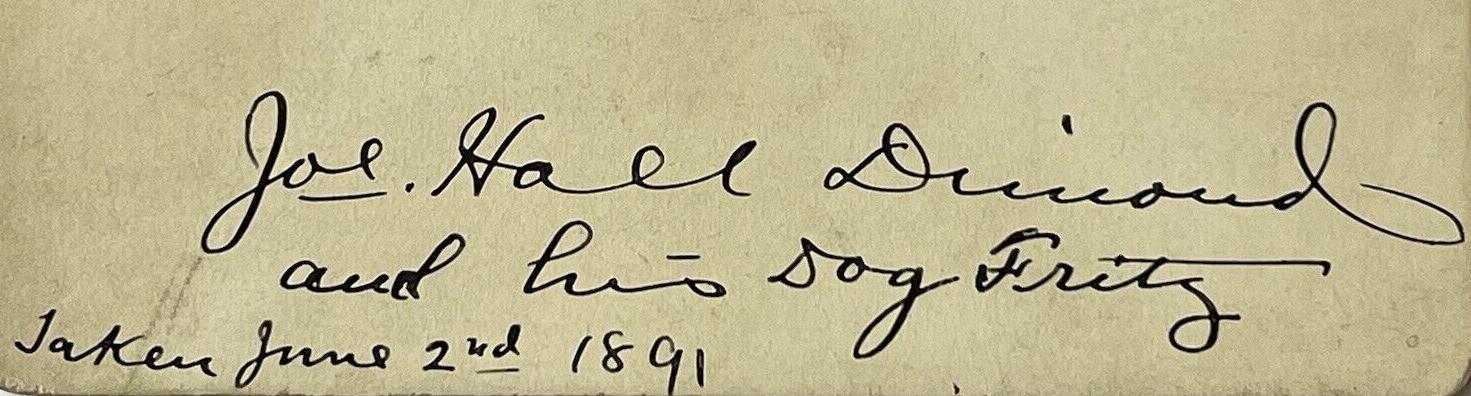 Joe. Hall Dimond
and his Dog Fritz
Taken June 2nd 1891